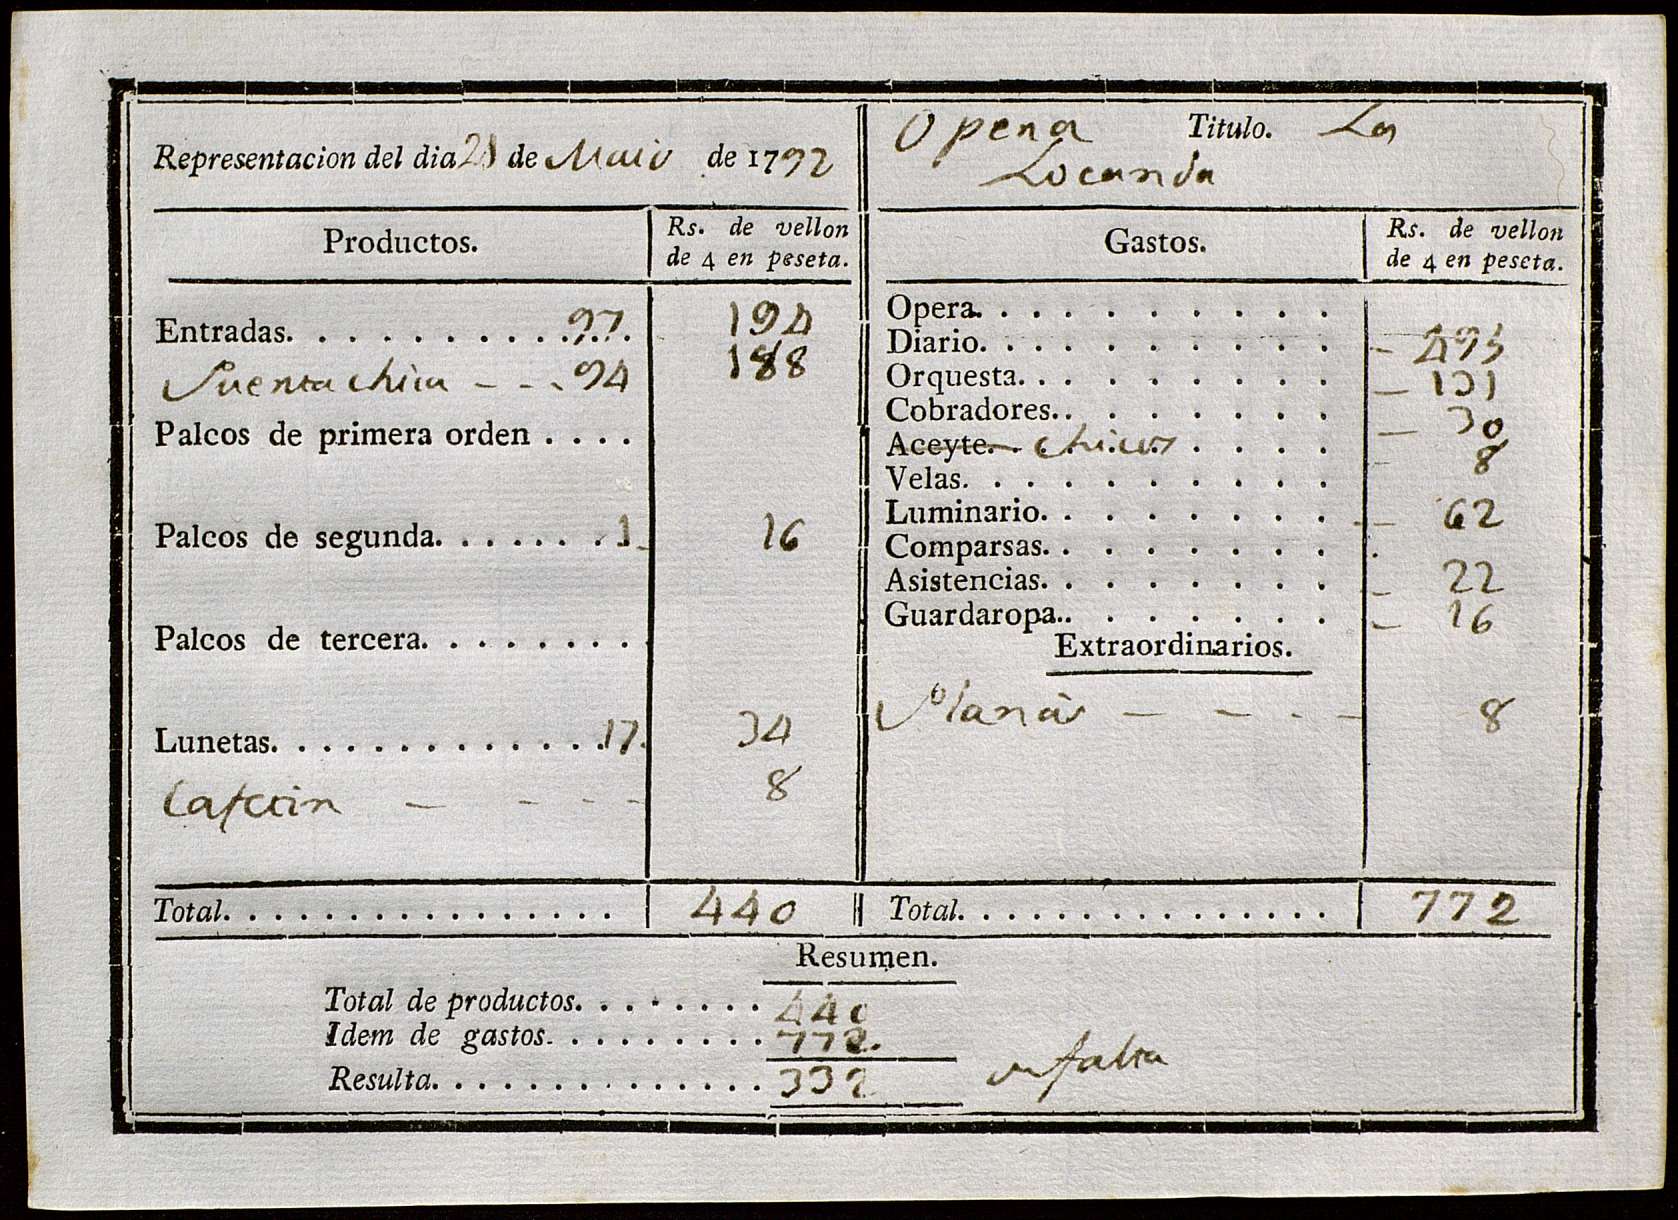 Representacion del dia de Maio de 1792
Opera Titulo. La
Locanda
Productos.
Rs. de vellon
de 4 en peseta.
Gastos.
Rs. de vellon
de 4 en peseta.
Entradas. . . . . . . . . . . 97. 194
Puerta chica - - - 94 188
Palcos de primera orden . . . .
Palcos de segunda. . . . . . . 1 16
Palcos de tercera. . . . . . . .
Lunetas. . . . . . . . . . . . . 17. 34
Cafetin - - - - 8
Total. . . . . . . . . . . . . . . . 440
Opera. . . . . . . . . . .
Diario. . . . . . . . . . - 495
Orquesta. . . . . . . . . - 131
Cobradores. . . . . . . . - 30
Aceyte. chicos . . . . - 8
Velas. . . . . . . . . . .
Luminario. . . . . . . . - 62
Comparsas. . . . . . . . .
Asistencias. . . . . . . . - 22
Guardaropa. . . . . . . . - 16
Extraordinarios.
- - - - 8
Total. . . . . . . . . . . . . . . . 772
Resumen.
Total de productos. . . . . . . . 440
Idem de gastos. . . . . . . . . 772.
Resulta. . . . . . . . . . . . . . 332 falta